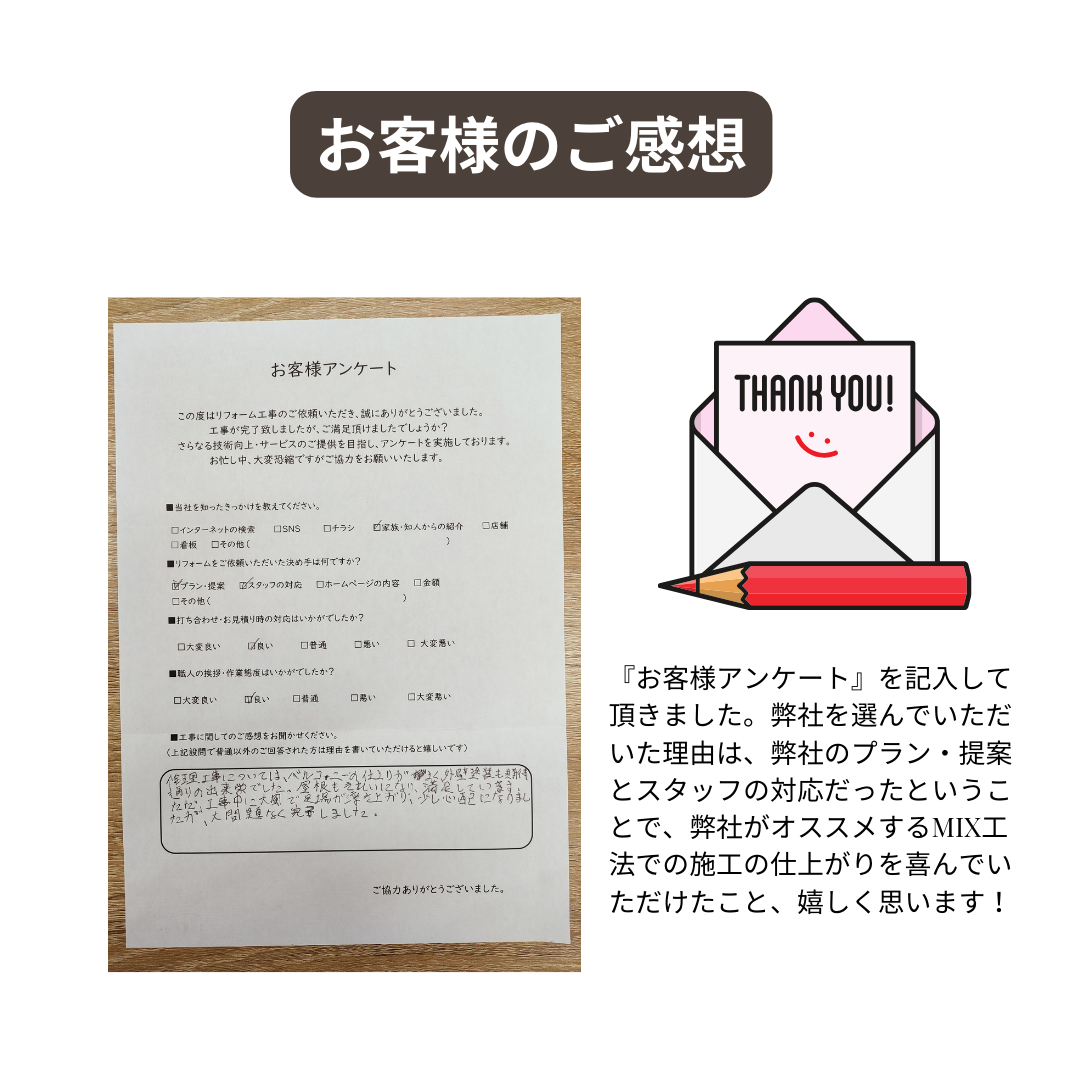 お客様のご感想
お客様アンケート
この度はリフォーム工事のご依頼いただき、誠にありがとうございました。
工事が完了致しましたが、ご満足頂けましたでしょうか?
さらなる技術向上・サービスのご提供を目指し、アンケートを実施しております。
お忙し中、大変恐縮ですがご協力をお願いいたします。
■当社を知ったきっかけを教えてください。
□インターネットの検索 □SNS □チラシ ☑家族・知人からの紹介 □店舗
□看板 □その他( )
■リフォームをご依頼いただいた決め手は何ですか?
☑プラン・提案 ☑スタッフの対応 □ホームページの内容 □金額
□その他( )
■打ち合わせ・お見積り時の対応はいかがでしたか?
□大変良い ☑良い □普通 □悪い □ 大変悪い
■職人の挨拶・作業態度はいかがでしたか?
□大変良い ☑良い □普通 □悪い □大変悪い
■工事に関してのご感想をお聞かせください。
(上記設問で普通以外のご回答された方は理由を書いていただけると嬉しいです)
修理工事については、バルコニーの仕上りが よく、外壁塗装も期待
通りの出来栄でした。屋根もきれいになり、満足しています。
ただ、工事中に大風で足場が 上がり、少し心配になりまし
たが、 問題なく完了しました。
ご協力ありがとうございました。
THANK YOU!
『お客様アンケート』を記入して
頂きました。弊社を選んでいただ
いた理由は、弊社のプラン・提案
とスタッフの対応だったというこ
とで、弊社がオススメするMIX工
法での施工の仕上がりを喜んでい
ただけたこと、嬉しく思います!